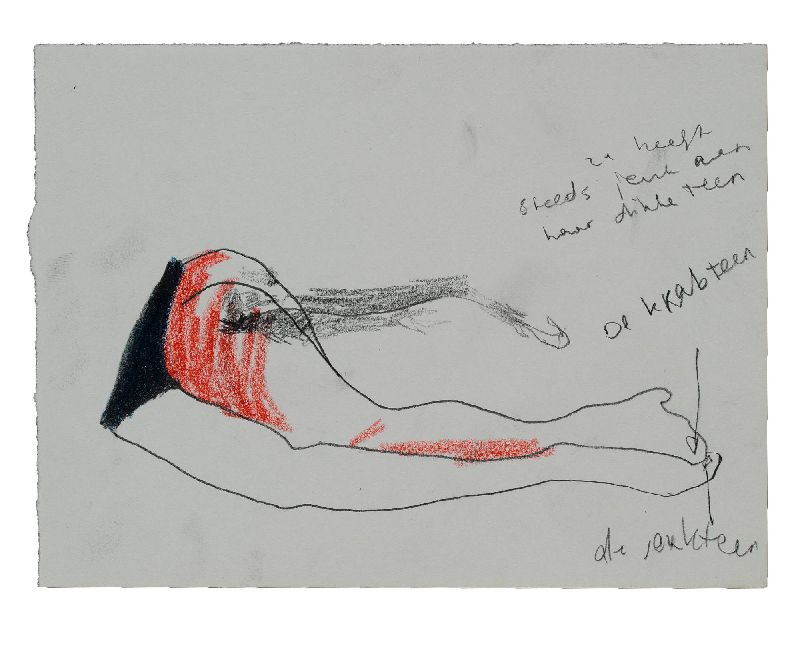 ze heeft
steeds jeuk aan
haar dikke teen
De krabteen
de jeukteen